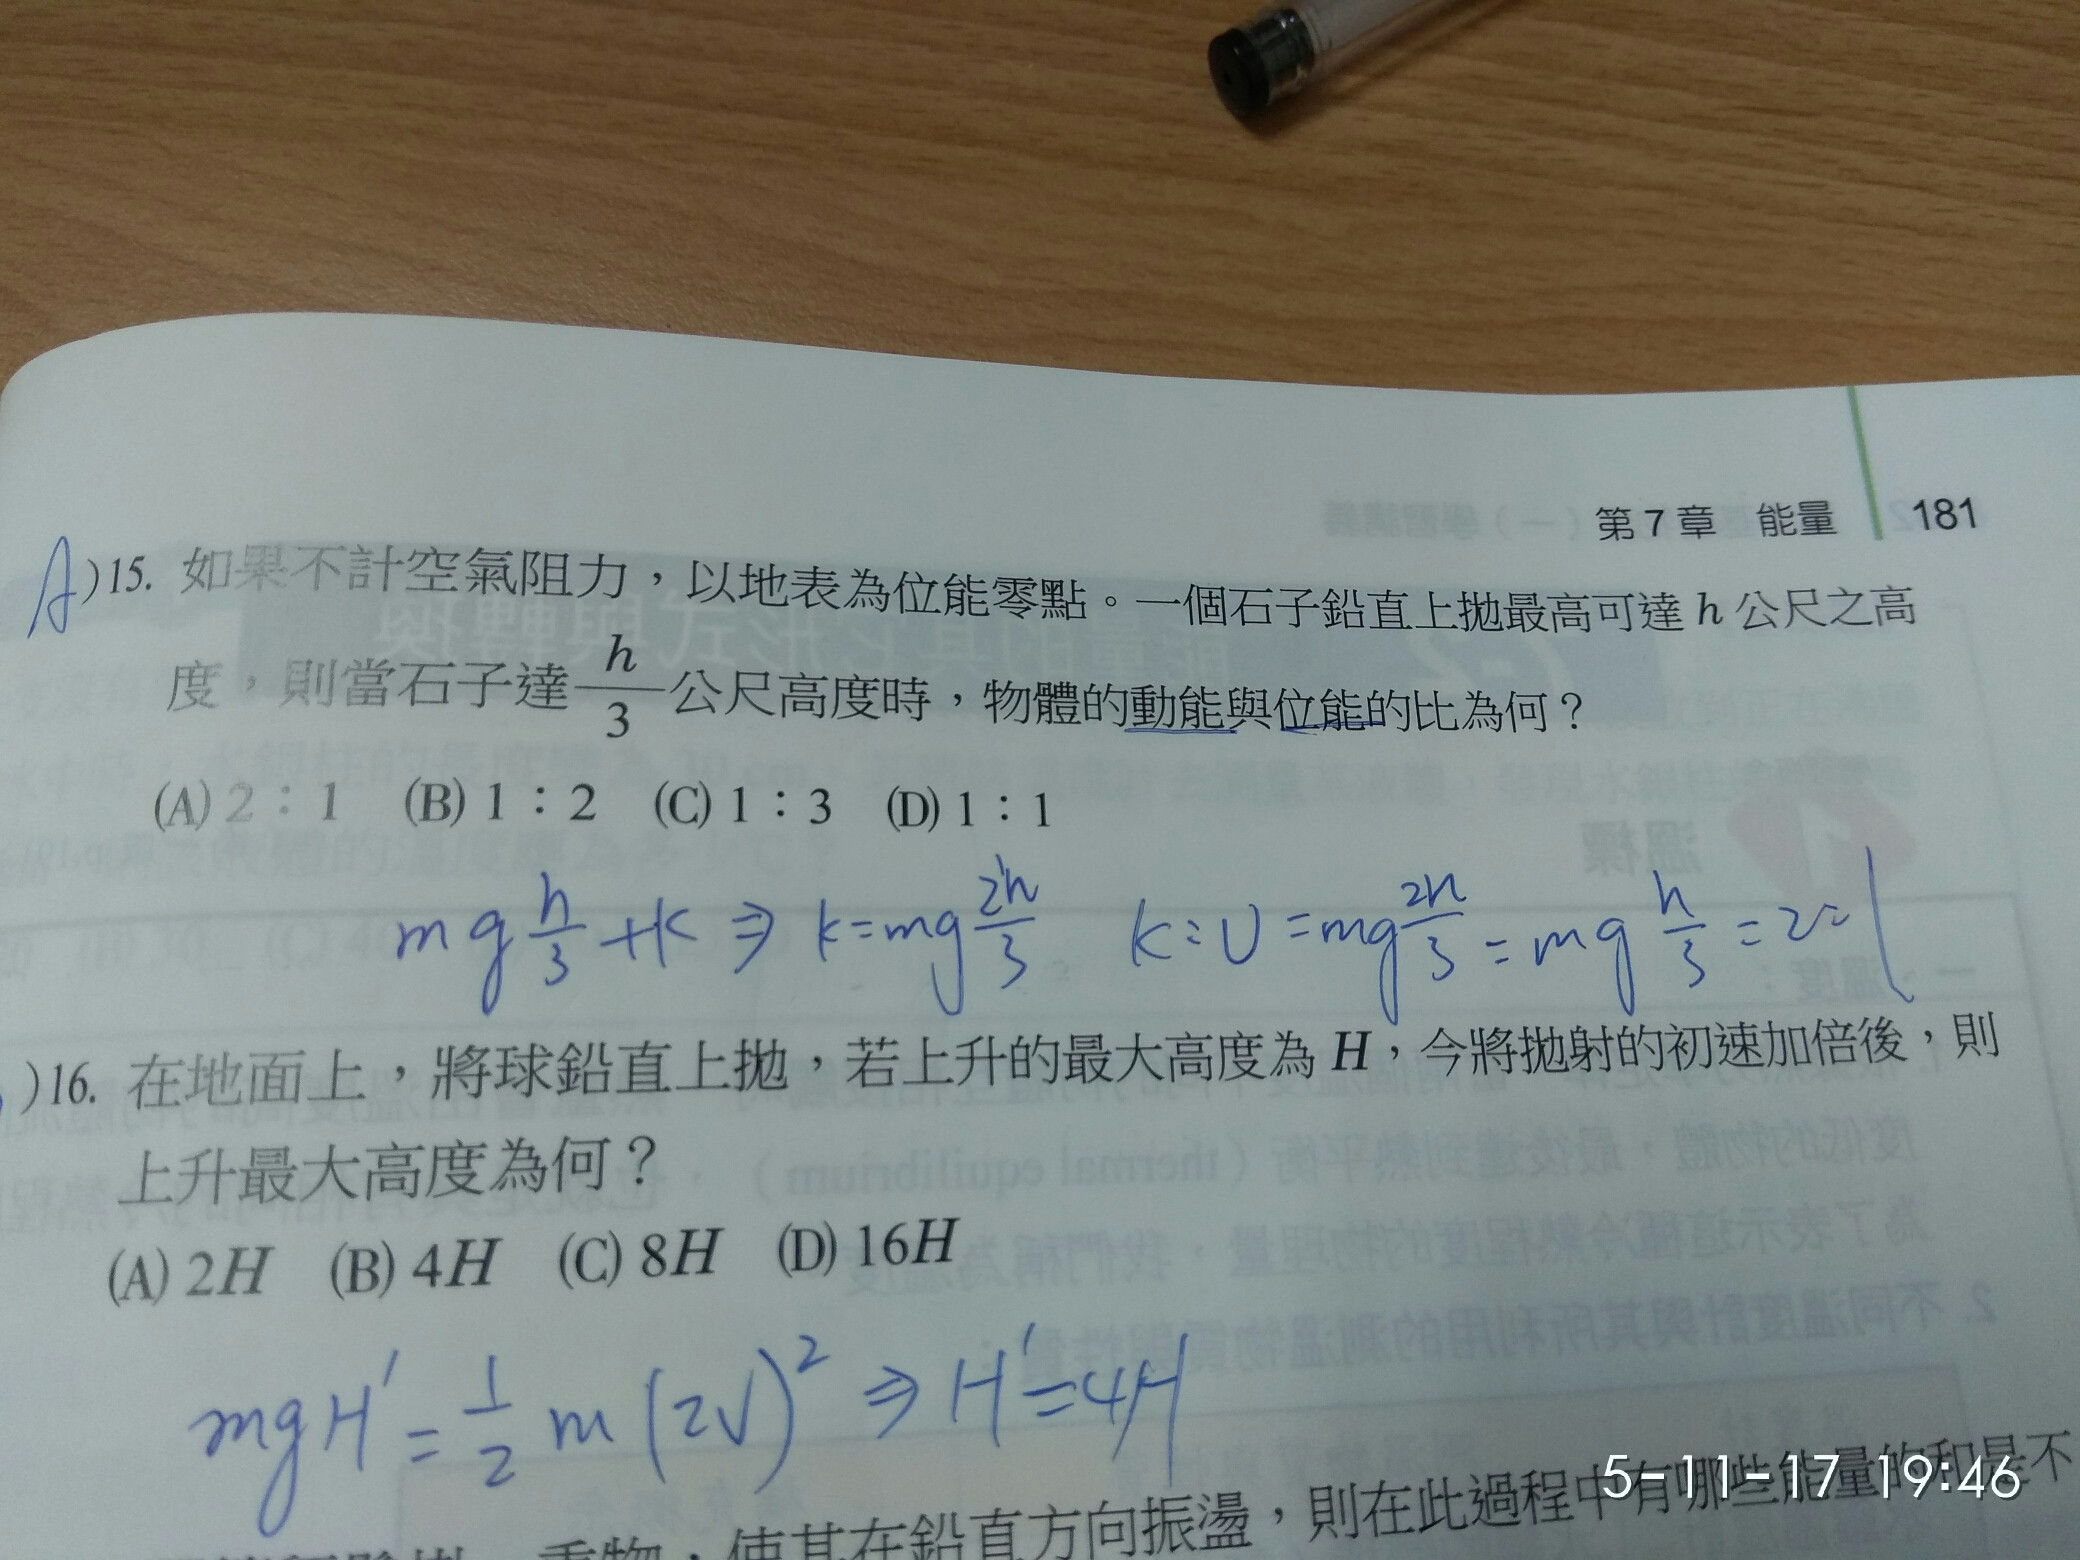 第7章 能量 181
A)15. 如果不計空氣阻力，以地表為位能零點。一個石子鉛直上拋最高可達h公尺之高
度，則當石子達h/3公尺高度時，物體的動能與位能的比為何？
(A) 2：1 (B) 1：2 (C) 1：3 (D) 1：1
mg h/3 +K ⇒ K=mg 2h/3 K:U =mg 2h/3 = mg h/3 = 2:1
)16. 在地面上，將球鉛直上拋，若上升的最大高度為H，今將拋射的初速加倍後，則
上升最大高度為何？
(A) 2H (B) 4H (C) 8H (D) 16H
mgH' = 1/2 m (2V)² ⇒ H'=4H
重物，使其在鉛直方向振盪，則在此過程中有哪些能量的和是不
5-11-17 19:46